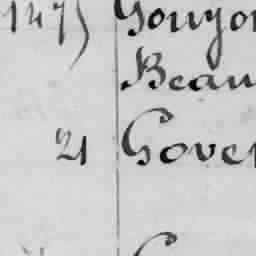 147) Gouyon
Beau
21 Gover